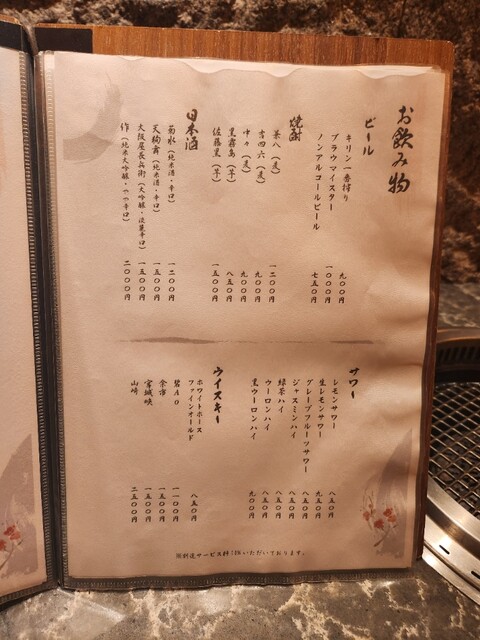 お飲み物
ビール
キリン一番搾り 九〇〇円
ブラウマイスター 一〇〇〇円
ノンアルコールビール 七五〇円
焼酎
茶八（麦） 一二〇〇円
吉四六（麦） 九〇〇円
中々（麦） 九〇〇円
黒霧島（芋） 八五〇円
佐藤黒（芋） 一五〇〇円
日本酒
菊水（純米酒・辛口） 一二〇〇円
天狗舞（純米酒・辛口） 一五〇〇円
大阪屋長兵衛（大吟醸・淡麗辛口） 一五〇〇円
作（純米大吟醸・やや辛口） 二〇〇〇円
サワー
レモンサワー 八五〇円
生レモンサワー 九五〇円
グレープフルーツサワー 八五〇円
ジャスミンハイ 八五〇円
緑茶ハイ 八五〇円
ウーロンハイ 八五〇円
黒ウーロンハイ 九〇〇円
ウイスキー
ホワイトホース
ファインオールド 八五〇円
碧Ao 一一〇〇円
余市 一五〇〇円
宮城峡 一五〇〇円
山崎 二五〇〇円
※別途サービス料10%いただいております。